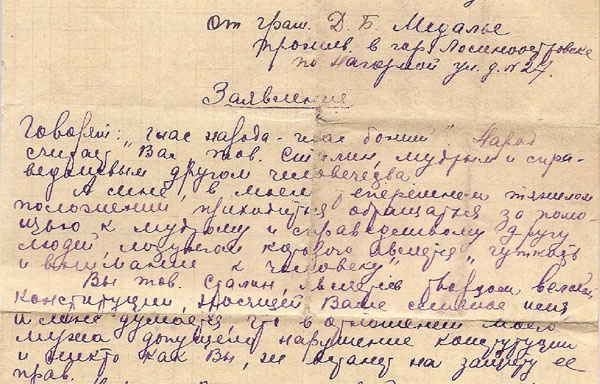 от граж. Д. Б. Медалье
прожив. в гор. Лосиноостровске
по Нагорной ул. д. № 27.
Заявление
Говорят: "глас народа - глас божий". Народ
считает Вас, тов. Сталин, мудрым и спра-
ведливым другом человечества
А мне, в моем теперешнем тяжелом
положении приходится обращаться за помо-
щью к мудрому и справедливому другу
людей, лозунгом которого является "чуткость
и внимание к человеку".
Вы тов. Сталин, являетесь творцом великой
конституции, носящей Ваше имя
и мне думается, что в отношении моего
мужа допущено нарушение конституции
и никто как Вы, не встанет на защиту ее
прав.